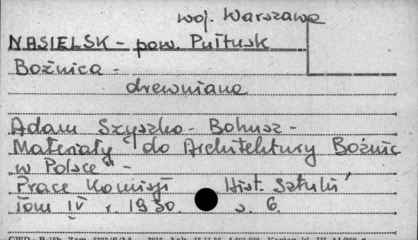 woj. Warszawa
NASIELSK - pow. Pułtusk
Bożnica -
drewniana
Adam Szyszko - Bohusz -
Materiały do Architektury Bożnic
w Polsce" -
Prace Komisji Hist. Sztuki'
Tom IV r. 1930. s. 6.